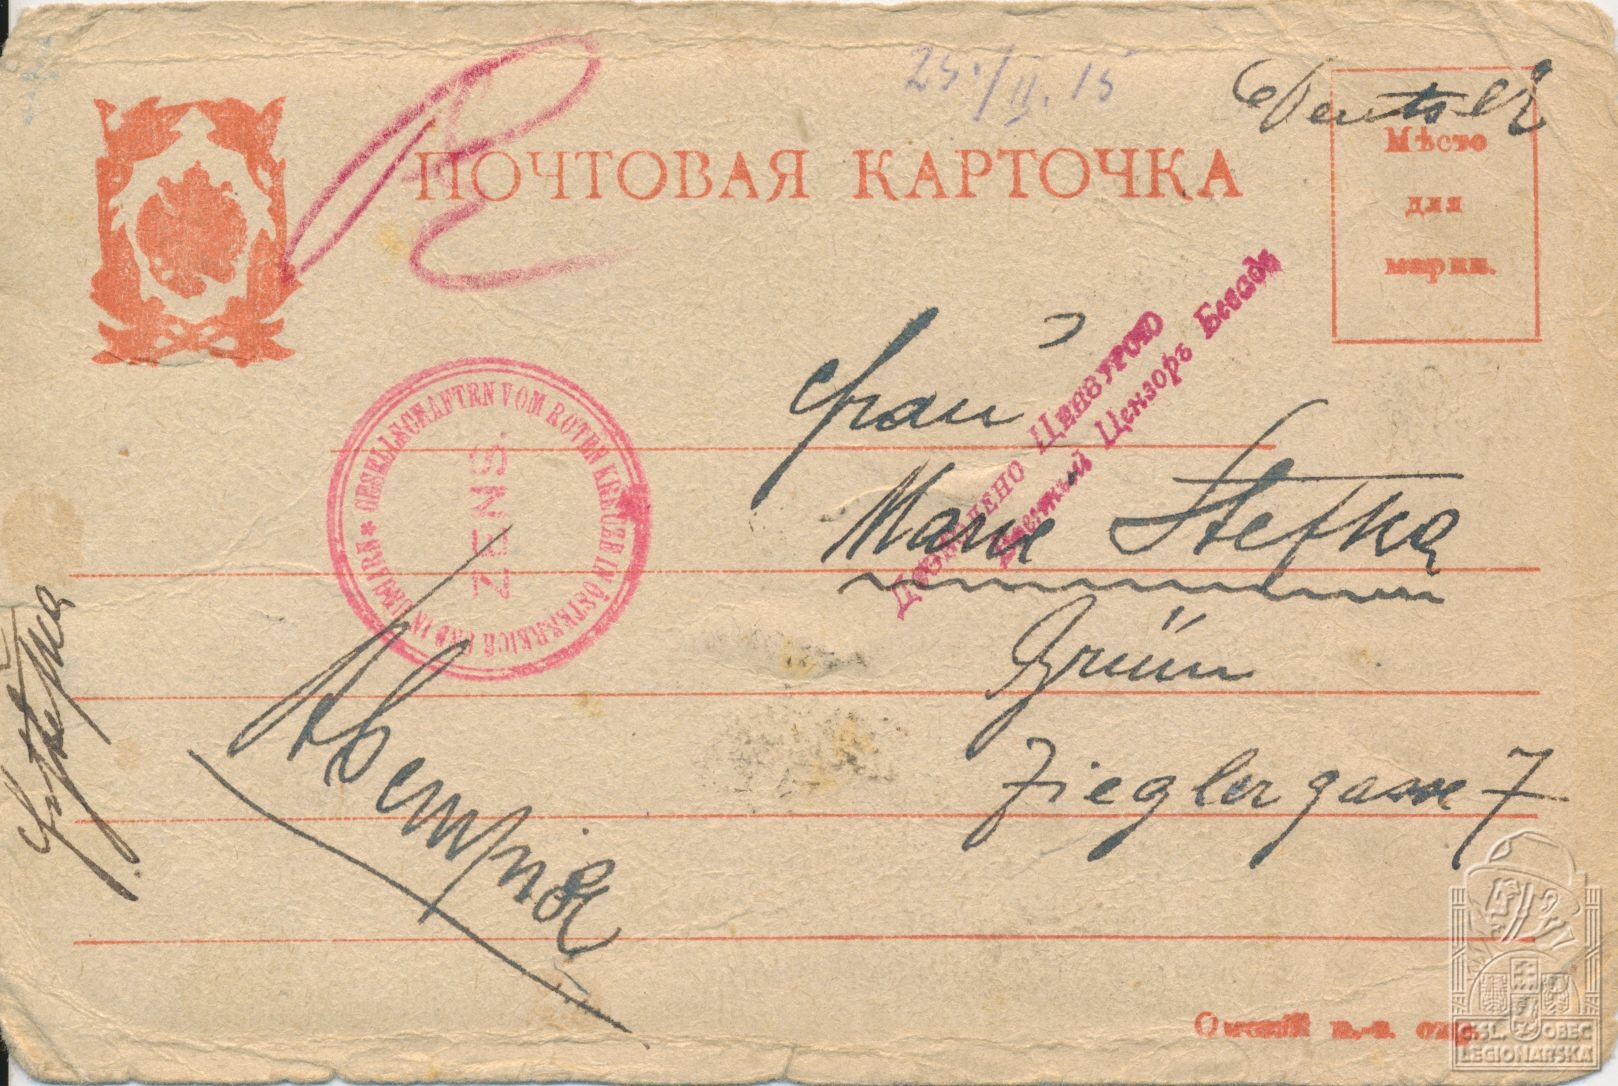 25./II.15
Deutsch
ПОЧТОВАЯ КАРТОЧКА
Мѣсто
для
марки.
Дозволено Цензурою
Военный Цензоръ
Frau
Marie Stefka
Brünn
Zieglergasse 7
GESELLSCHAFTEN VOM ROTEN KREUZE IN ÖSTERREICH UND IN UNGARN *
ZENS.
Омскій п.-т. окр.
Č.SL. OBEC
LEGIONÁŘSKÁ